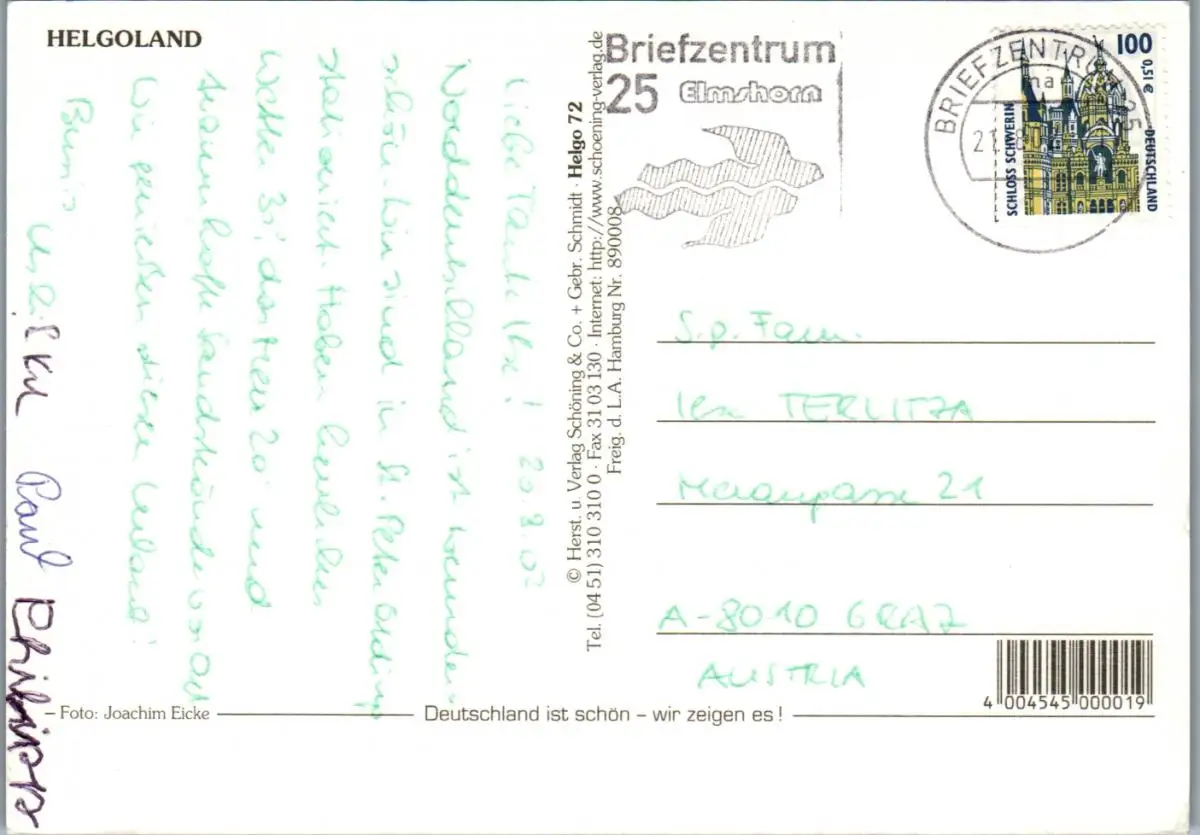 HELGOLAND
Liebe Tante Ilse! 20.8.02
Norddeutschland ist wunder-
schön. Wir sind in St. Peter Ording
stationiert. Haben herrliches
Wetter 31°, das Meer 20° und
traumhafte Sandstrände vor Ort
Wir genießen diesen Urlaub!
Bussis
Paul Philipp
© Herst. u. Verlag Schöning & Co. + Gebr. Schmidt · Helgo 72
Tel. (04 51) 310 310 0 · Fax 31 03 130 · Internet: http://www.schoening-verlag.de
Freig. d. L.A. Hamburg Nr. 890008
Briefzentrum
25 Elmshorn
BRIEFZENTRUM 25
100
0,51 €
SCHLOSS SCHWERIN
DEUTSCHLAND
S.p. Fam.
Ilse TERLITZA
21
A-8010 GRAZ
AUSTRIA
4 004545 000019
Foto: Joachim Eicke
Deutschland ist schön – wir zeigen es!